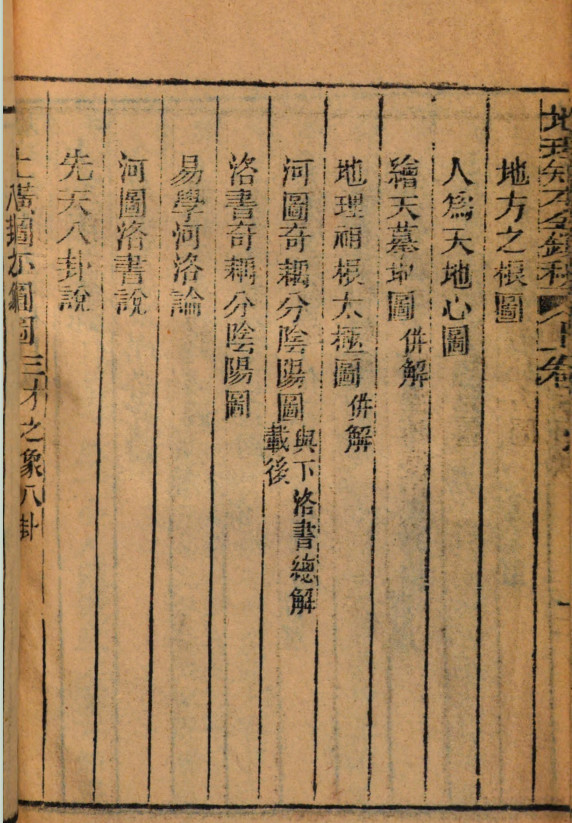 地理
卷
地方之根圖
人為天地心圖
繪天墓地圖 併解
地理祖根太極圖 併解
河圖奇耦分陰陽圖 與下洛書總解載後
洛書奇耦分陰陽圖
易學河洛論
河圖洛書說
先天八卦說
橫圖亦圓圖三才之象八卦